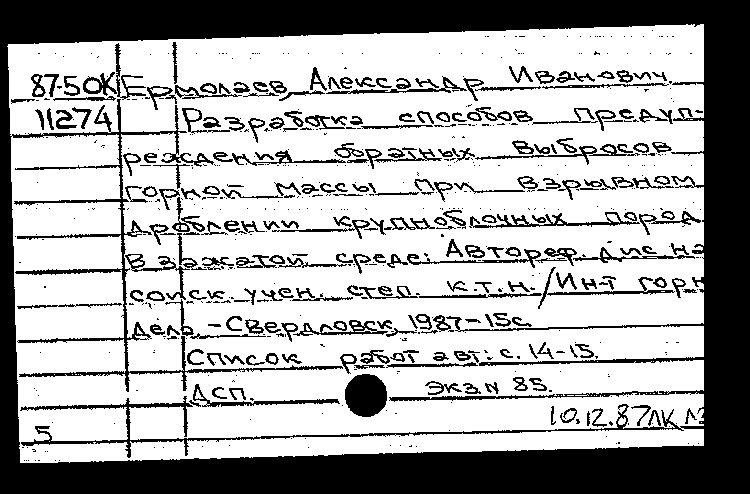 87-5ОК Ермолаев, Александр Иванович
11274 Разработка способов предуп-
реждения обратных выбросов
горной массы при взрывном
дроблении крупноблочных пород
в зажатой среде: Автореф. дис на
соиск. учен. степ. к.т.н. / Ин-т горн
дела. - Свердловск, 1987-15с.
Список работ авт: с. 14-15.
ДСП. экз N 85.
10.12.87 ЛК
5